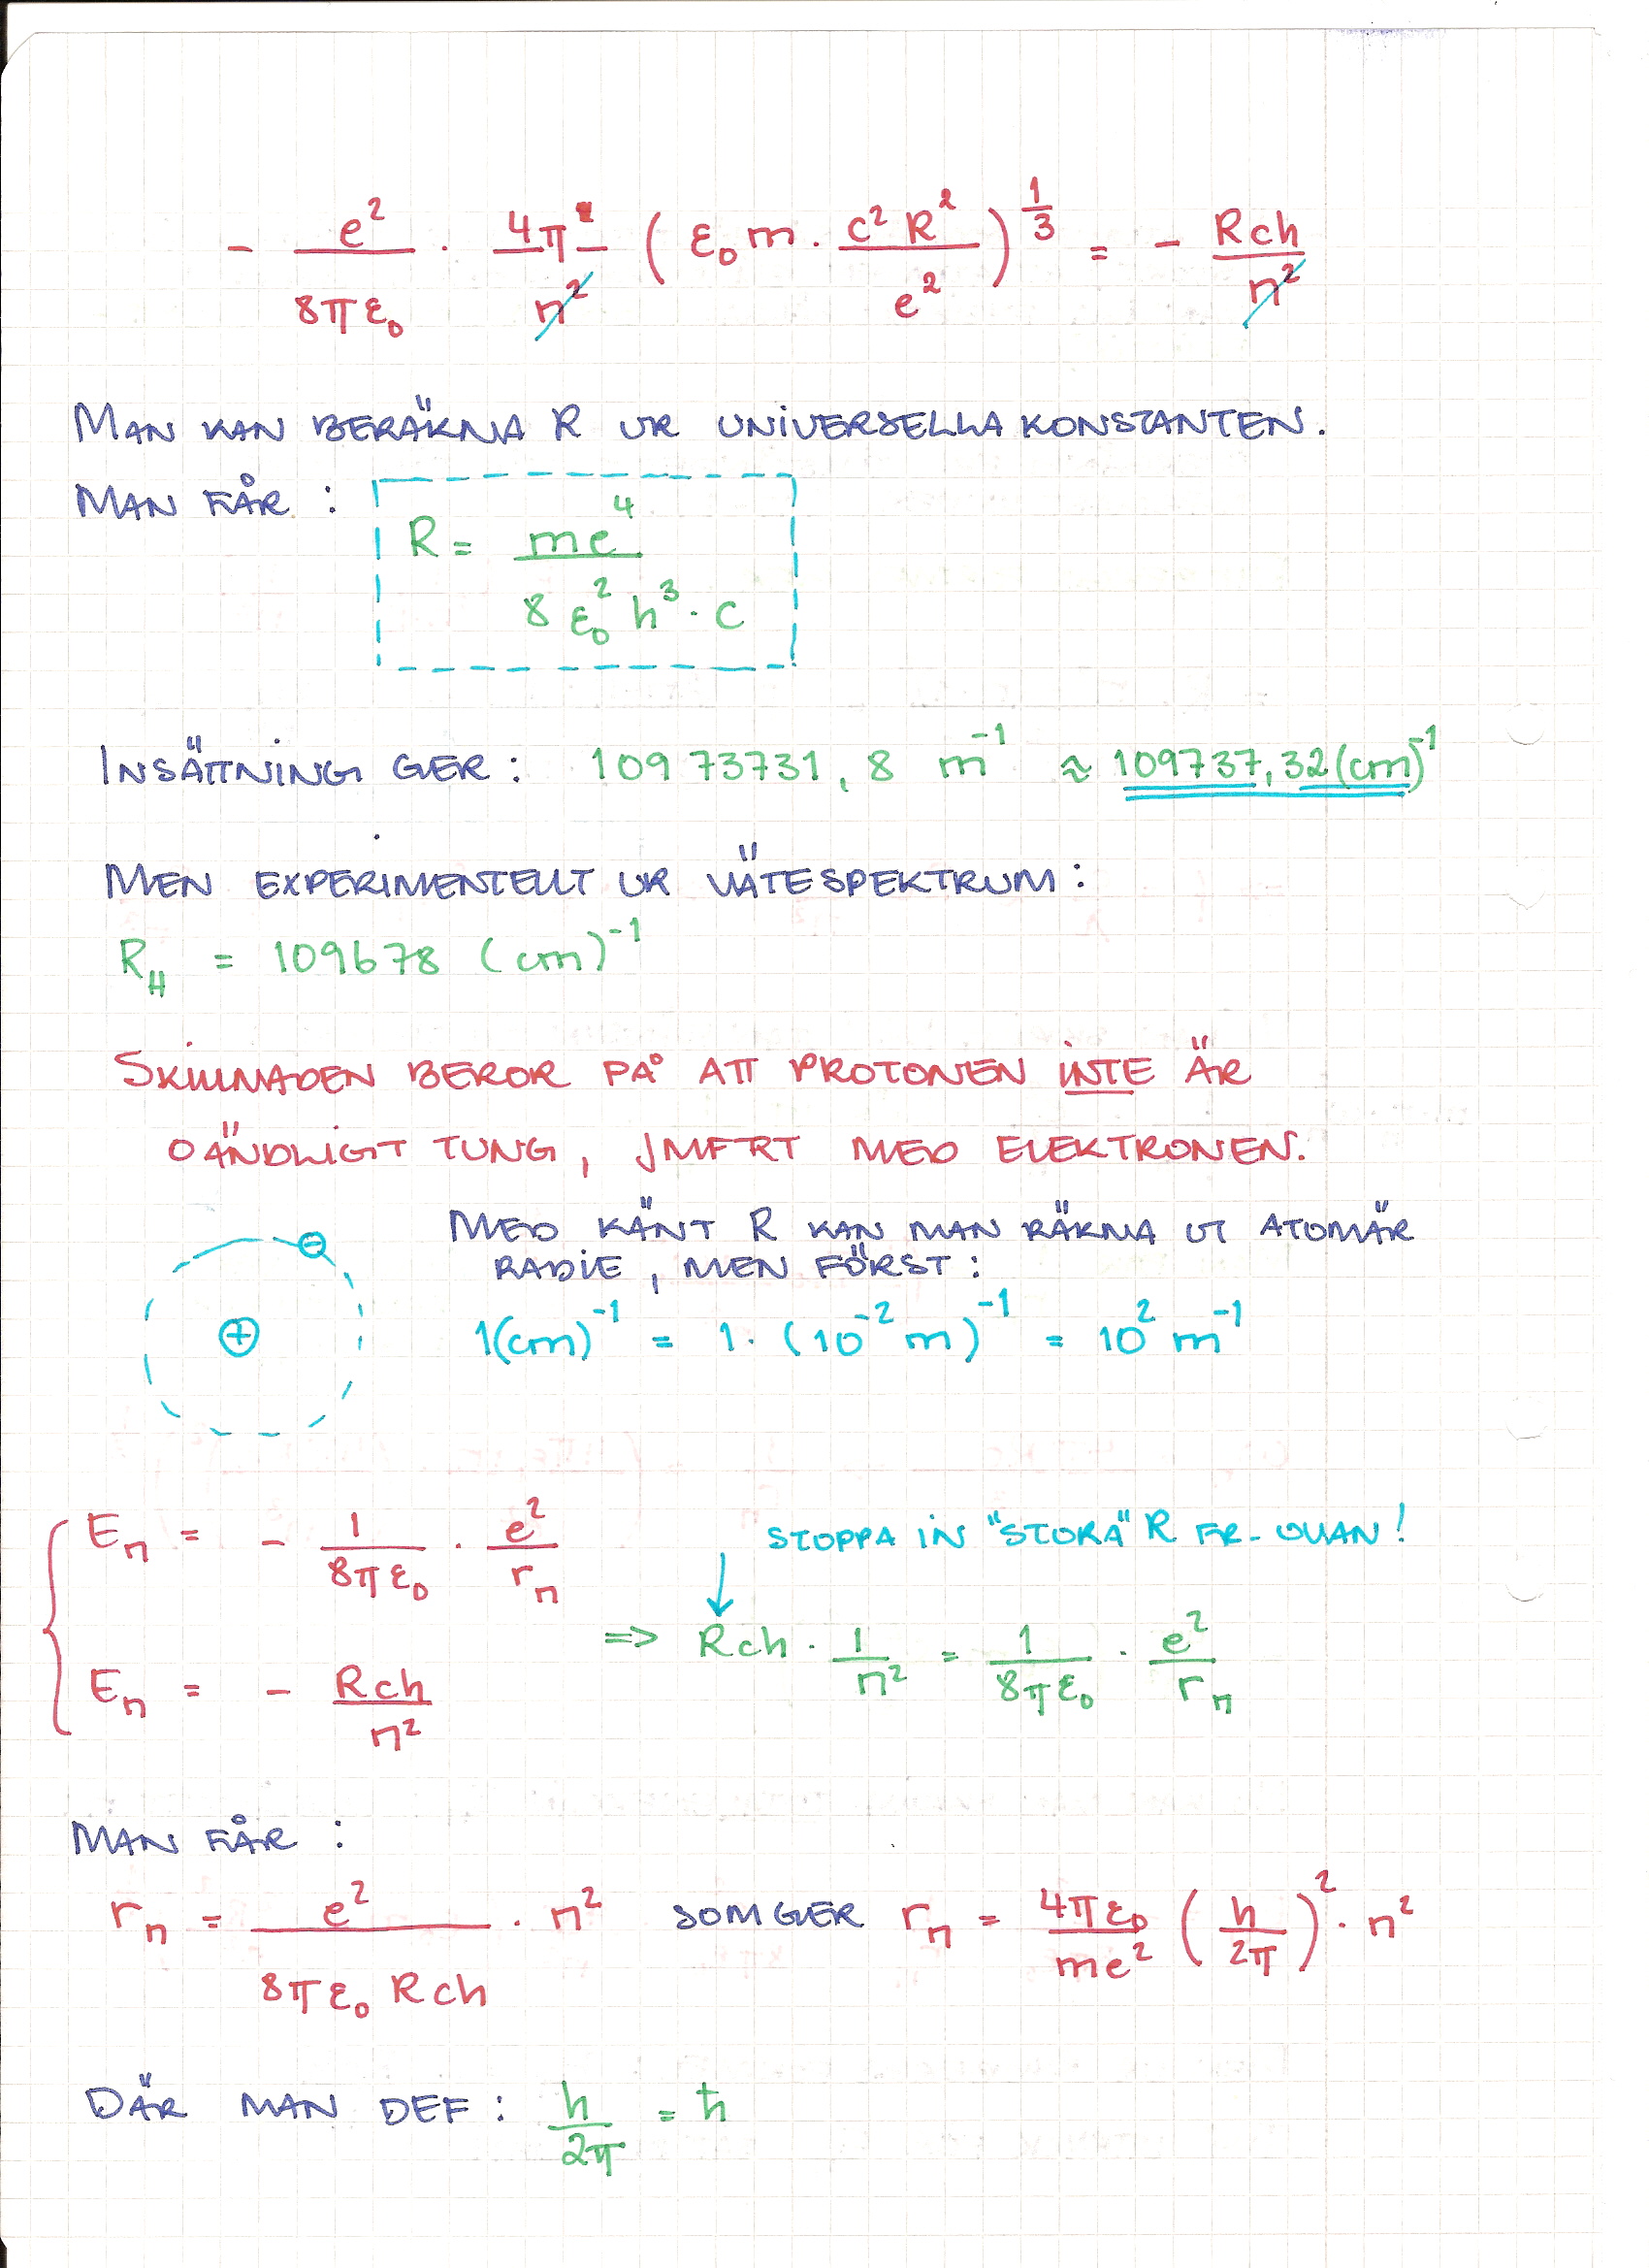 - e²/(8πε₀) · 4π²/n² (ε₀m · c²R²/e²)^(1/3) = - Rch/n²
MAN KAN BERÄKNA R UR UNIVERSELLA KONSTANTEN.
MAN FÅR : R = me⁴/(8ε₀²h³·c)
INSÄTTNING GER : 10973731,8 m⁻¹ ≈ 109737,32(cm)⁻¹
MEN EXPERIMENTELLT UR VÄTESPEKTRUM :
R_H = 109678 (cm)⁻¹
SKILLNADEN BEROR PÅ ATT PROTONEN INTE ÄR
OÄNDLIGT TUNG, JMFRT MED ELEKTRONEN.
MED KÄNT R KAN MAN RÄKNA UT ATOMÄR
RADIE, MEN FÖRST :
1(cm)⁻¹ = 1·(10⁻² m)⁻¹ = 10² m⁻¹
⊖
⊕
Eₙ = - 1/(8πε₀) · e²/rₙ
STOPPA IN "STORA" R FR- OVAN!
=> Rch · 1/n² = 1/(8πε₀) · e²/rₙ
Eₙ = - Rch/n²
MAN FÅR :
rₙ = e²/(8πε₀ Rch) · n² SOM GER rₙ = 4πε₀/(me²) (h/2π)² · n²
DÄR MAN DEF : h/2π = ħ